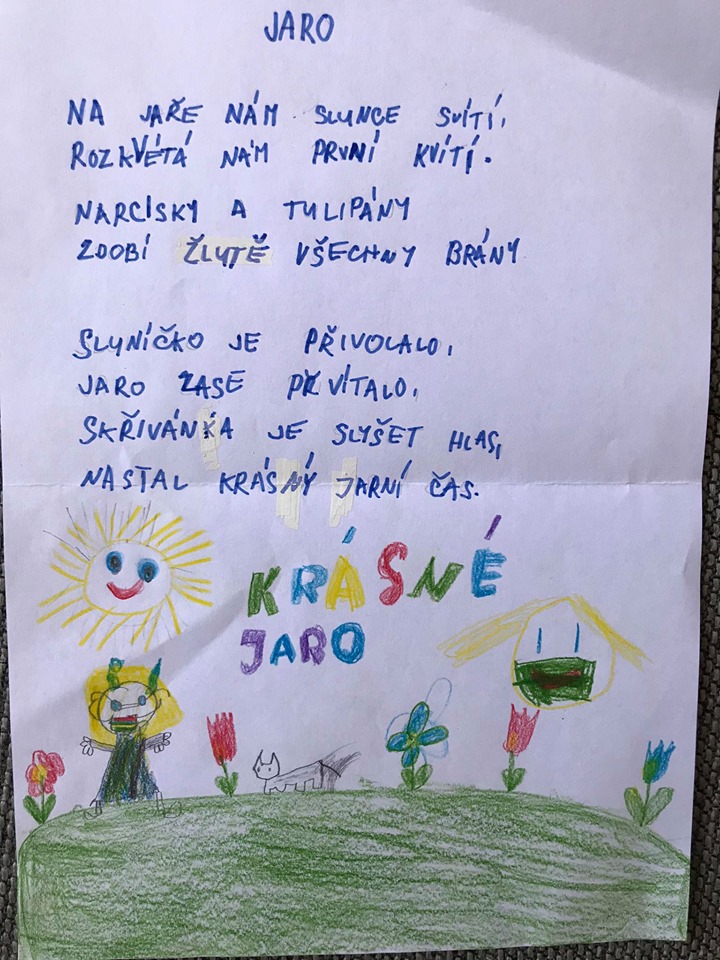 JARO
NA JAŘE NÁM SLUNCE SVÍTÍ,
ROZKVÉTÁ NÁM PRVNÍ KVÍTÍ.
NARCISKY A TULIPÁNY
ZDOBÍ ŽLUTĚ VŠECHNY BRÁNY
SLUNÍČKO JE PŘIVOLALO,
JARO ZASE PŘVÍTALO,
SKŘIVÁNKA JE SLYŠET HLAS,
NASTAL KRÁSNÝ JARNÍ ČAS.
KRÁSNÉ
JARO